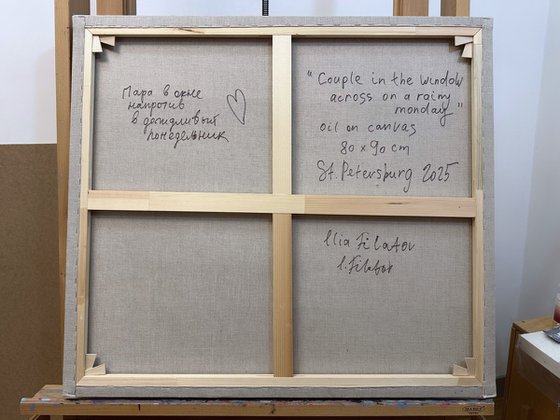 Пара в окне
напротив
в дождливый
понедельник
"Couple in the window
across on a rainy
monday"
oil on canvas
80 x 90 cm
St. Petersburg 2025
Ilia Filatov
I. Filatov